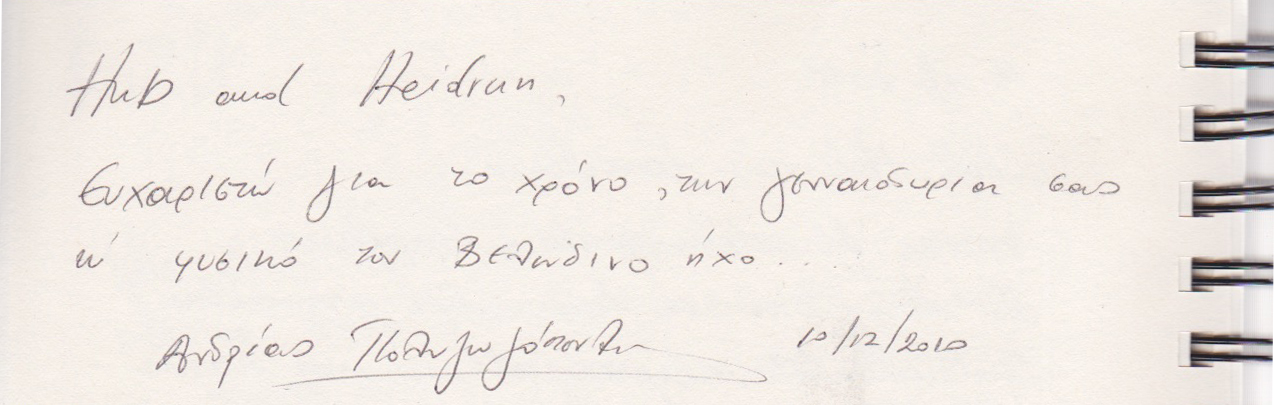 Hub and Heidrun,
Ευχαριστώ για το χρόνο, την γενναιοδωρία σας
κ' φυσικό τον βελούδινο ήχο...
Ανδρέας 10/12/2010